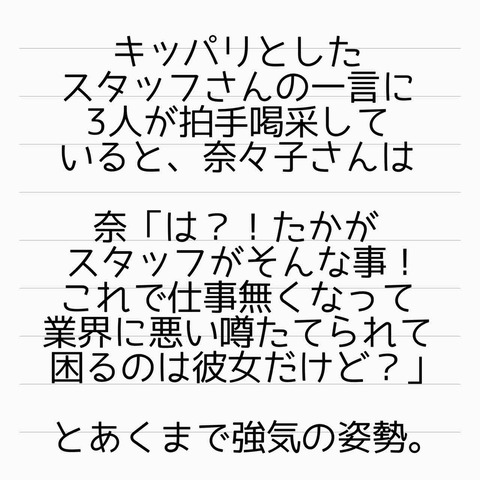 キッパリとした
スタッフさんの一言に
3人が拍手喝采して
いると、奈々子さんは
奈「は？！たかが
スタッフがそんな事！
これで仕事無くなって
業界に悪い噂たてられて
困るのは彼女だけど？」
とあくまで強気の姿勢。